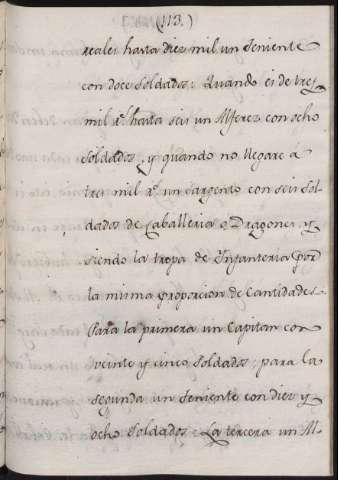 (113.)
reales hasta diez mil un Teniente
con doce Soldados: Quando es de tres
mil r.^s hasta seis un Alferez con ocho
Soldados, y quando no llegare á
tres mil r.^s un Sargento con seis Sol-
dados de Caballeria o Dragones, y
siendo la tropa de Infanteria por
la misma proporcion de Cantidades.
Para la primera un Capitan con
veinte y cinco Soldados; para la
segunda un Teniente con diez y
ocho Soldados: La tercera un Al-